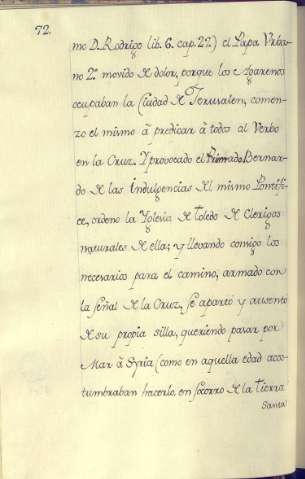 72.
mo D. Rodrigo lib. 6. cap. 27) el Papa Vrba-
no 2º movido de dolor, porque los Agarenos
ocupaban la Ciudad de Jerusalem, comen-
zo el mismo â predicar â todos al Verbo
en la Cruz. Y provocado el Primado Bernar-
do de las indulgencias del mismo Pontifi-
ce, ordeno la Yglesia de Toledo de Clerigos
naturales de ella; y llevando consigo los
necesarios para el camino, armado con
la señal de la Cruz, se apartó y ausento
de su propia silla, queriendo pasar por
Mar â Syria (como en aquella edad acos-
tumbraban hacerlo, en socorro de la tierra
Santa